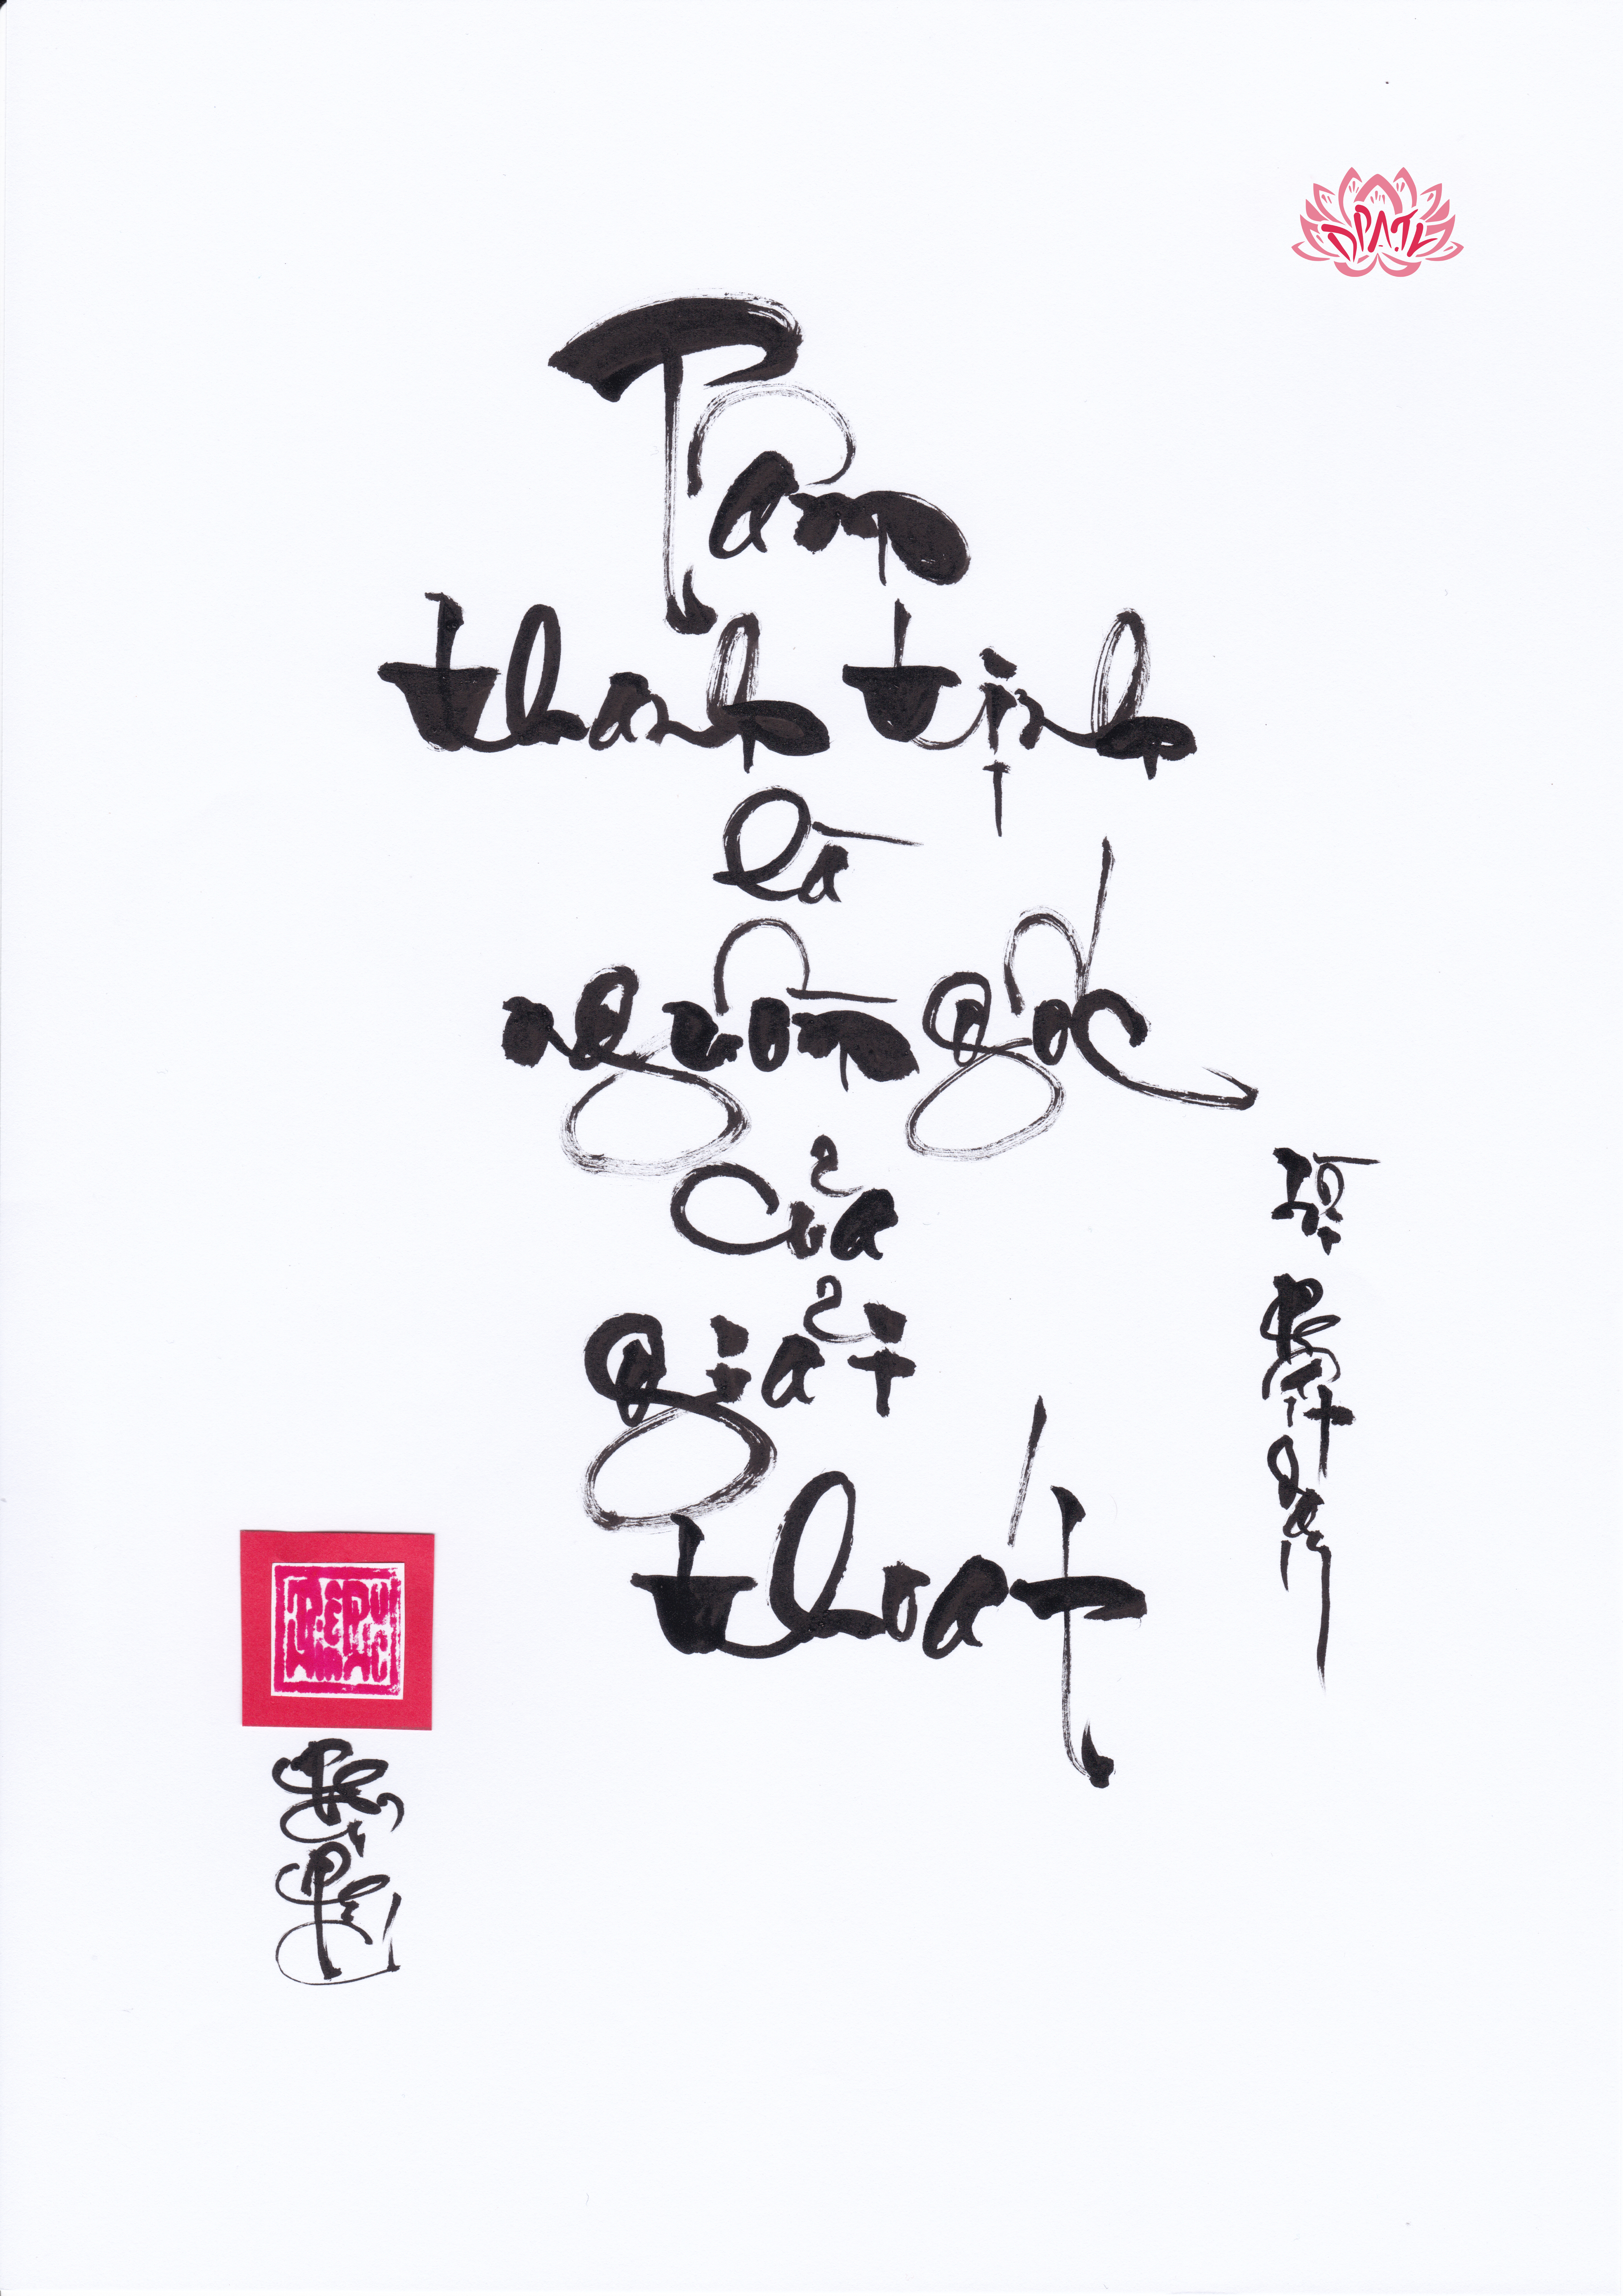 ĐPATV
Tâm
thanh tịnh
là
nguồn gốc
của
giải
thoát